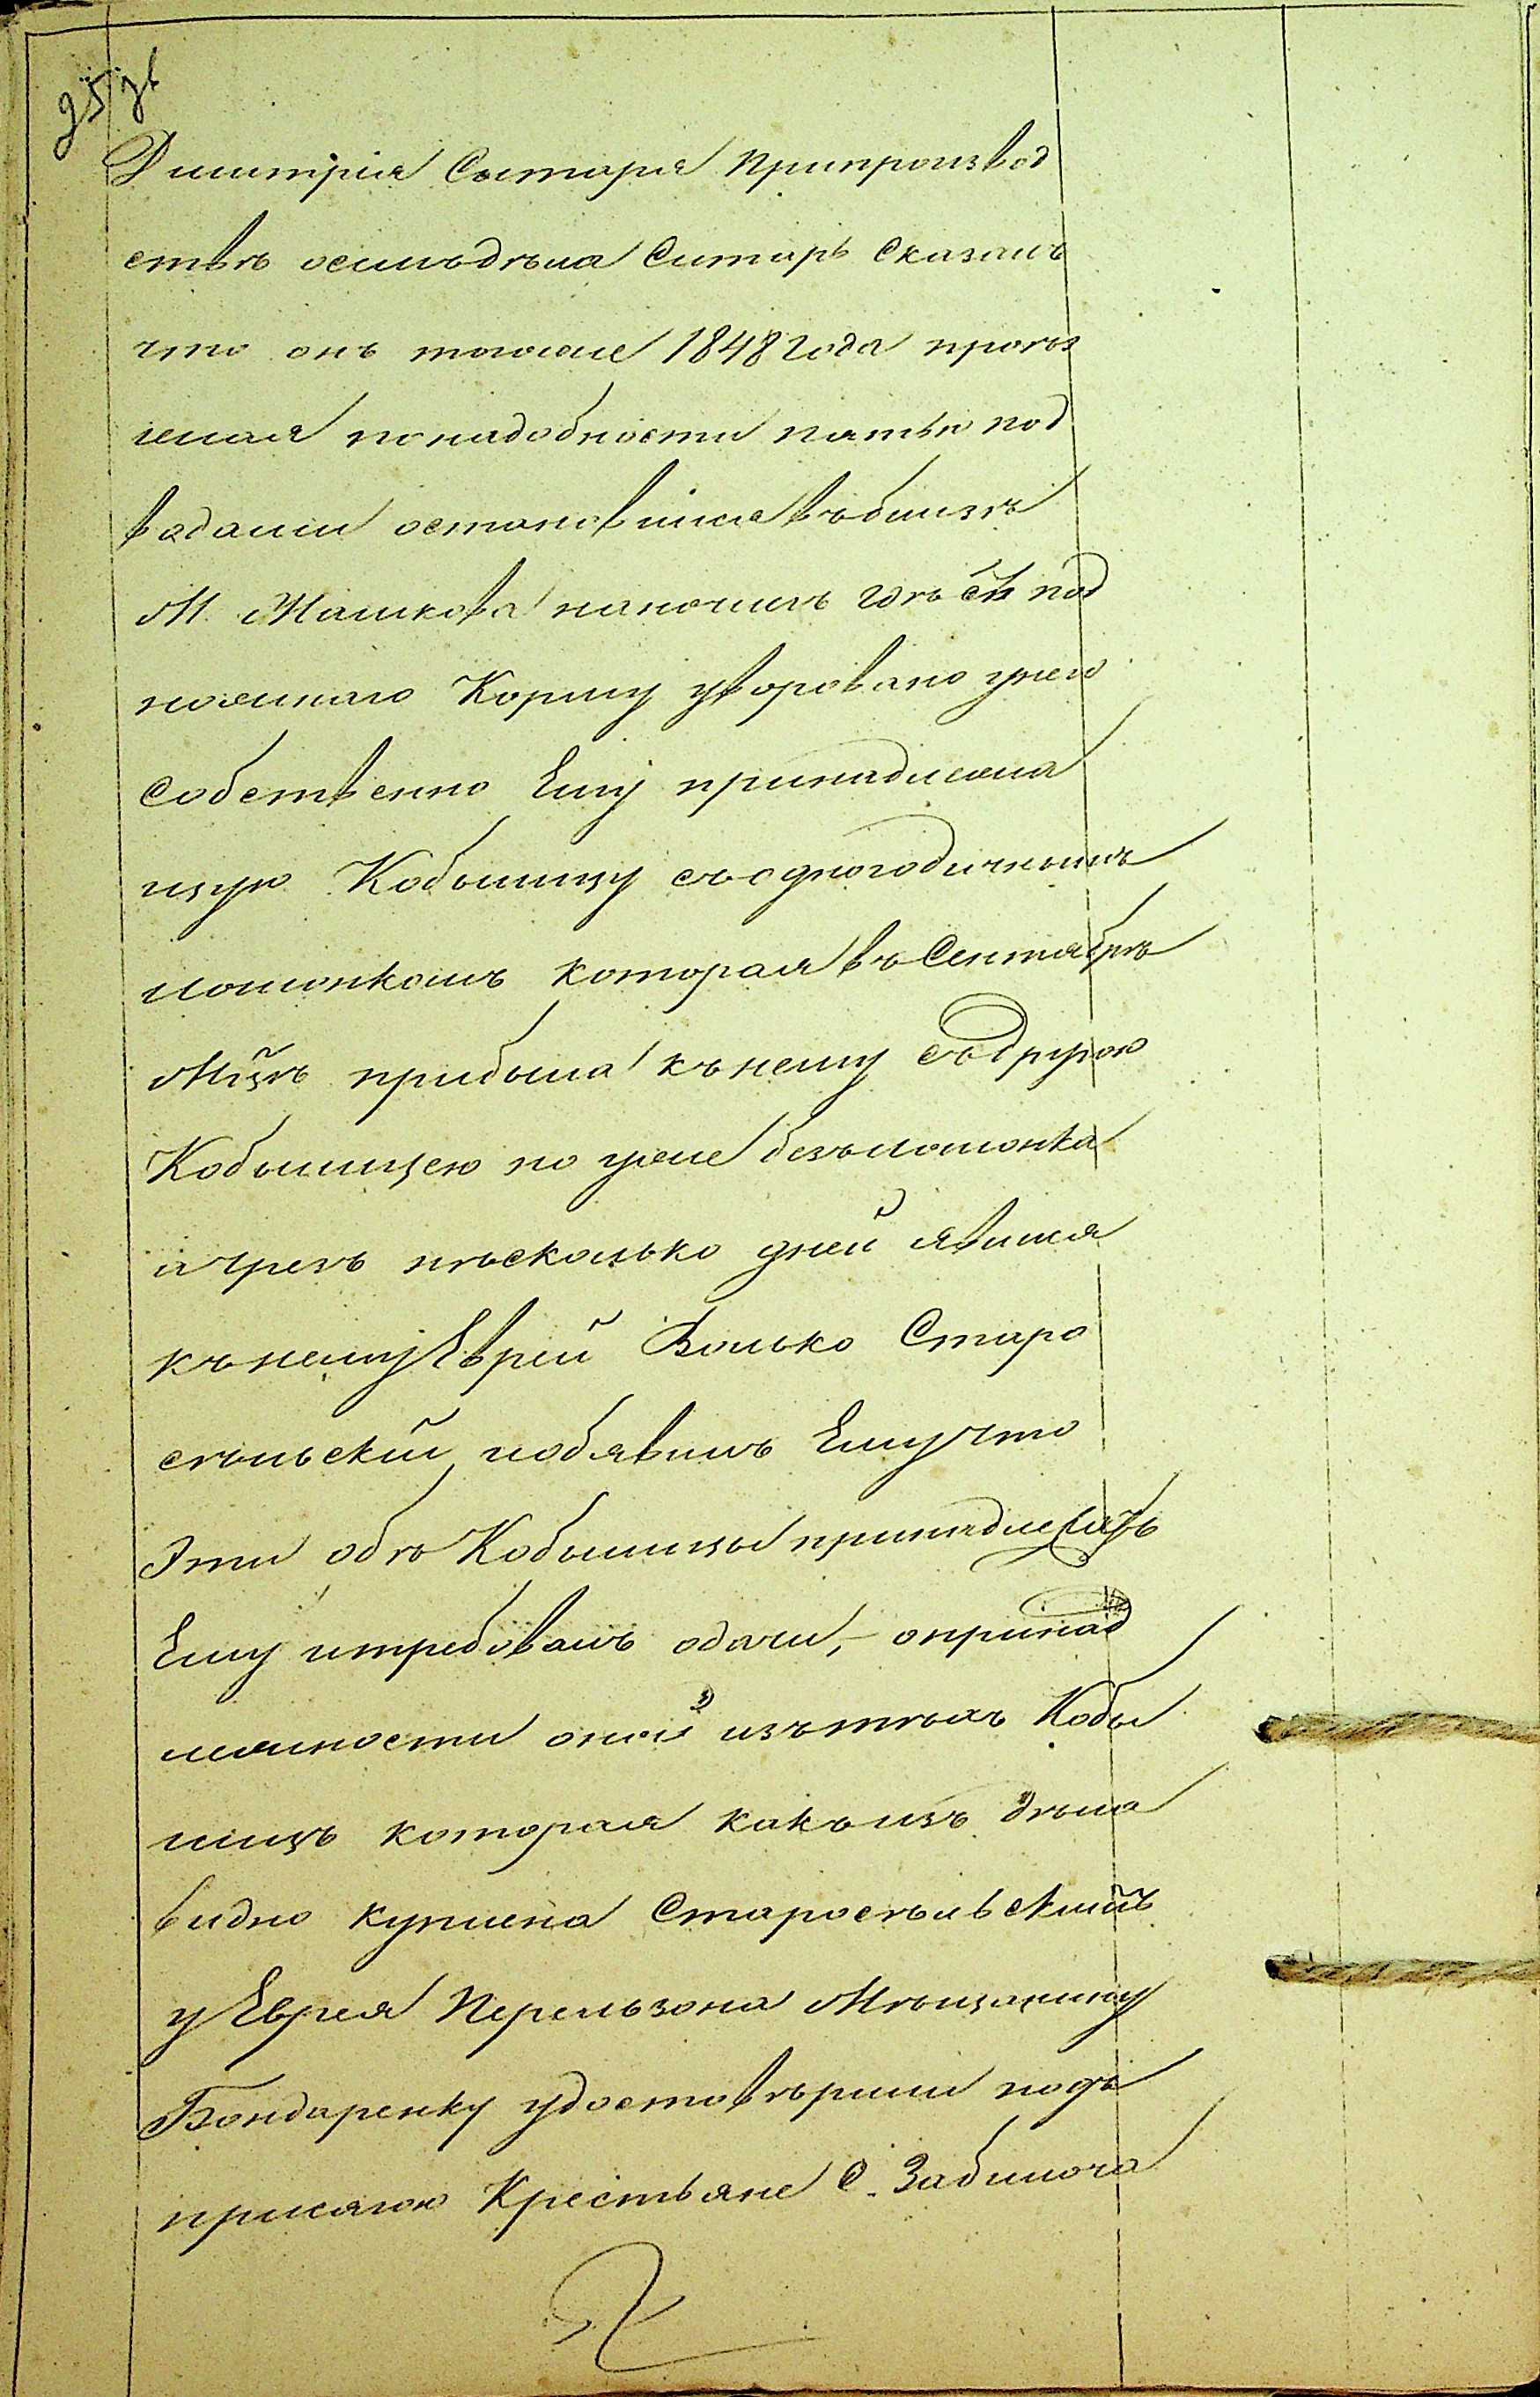 Димитрія Ситаря припроизвод
ствѣ осимъдѣла Ситарь сказалъ
что онъ тогоже 1848 года проѣз
жая понадобности пятью под
водами остановился въблизѣ
М. Жашкова наночлегъ гдѣ съ под
ножнаго Корму уворовано унего
собственно Ему принадлежа
щую Кобылицу съодногодичнымъ
лошонкомъ которая въ Сентябрѣ
Мц̃ѣ прибыла къ нему съдругою
Кобылицею но уже безълошонка
ичрезъ нѣсколько дней явился
къ нему Еврей Волько Старо
сѣльскій иобявилъ Ему что
Эти обѣ Кобылицы принадлежатъ
Ему итребовалъ одачи, - опринад
лежности оной изътѣхъ Кобы
лицъ которая какъизъ дѣла
видно куплена Старосѣльскимъ
у Еврея Перельзона Мѣщанину
Бондаренку удостовѣрили подъ
присягою Крестьяне С.